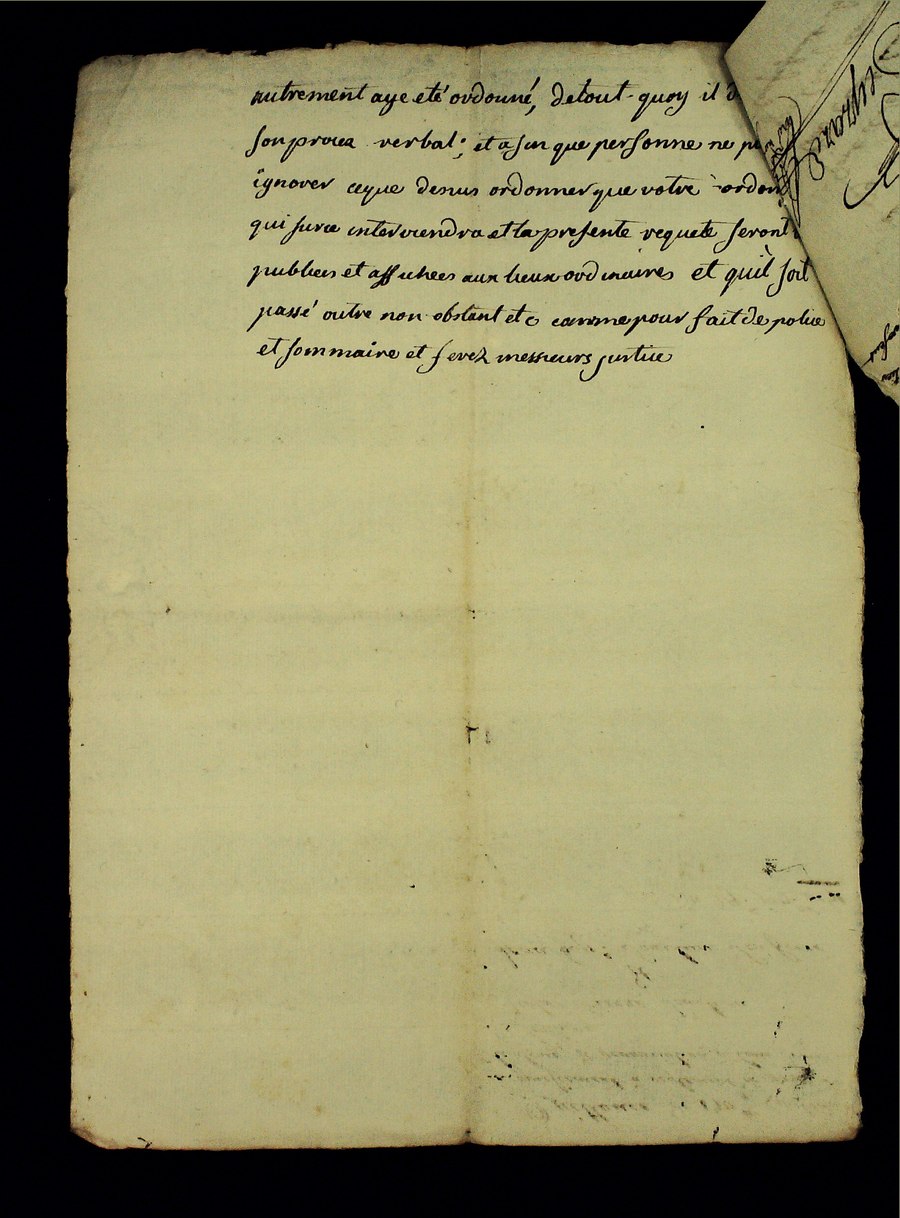 autrement aye eté ordonné, detout quoy il d
son procea verbal; et afin que personne ne p
ignorer ceque denus ordonner que votre ordon
qui surce interviendra et la presente requete seront
publiees et affichees aux lieux ordinaires et quil soit
passé outre non obstant etc comme pour fait de police
et sommaire et ferez messieurs justice